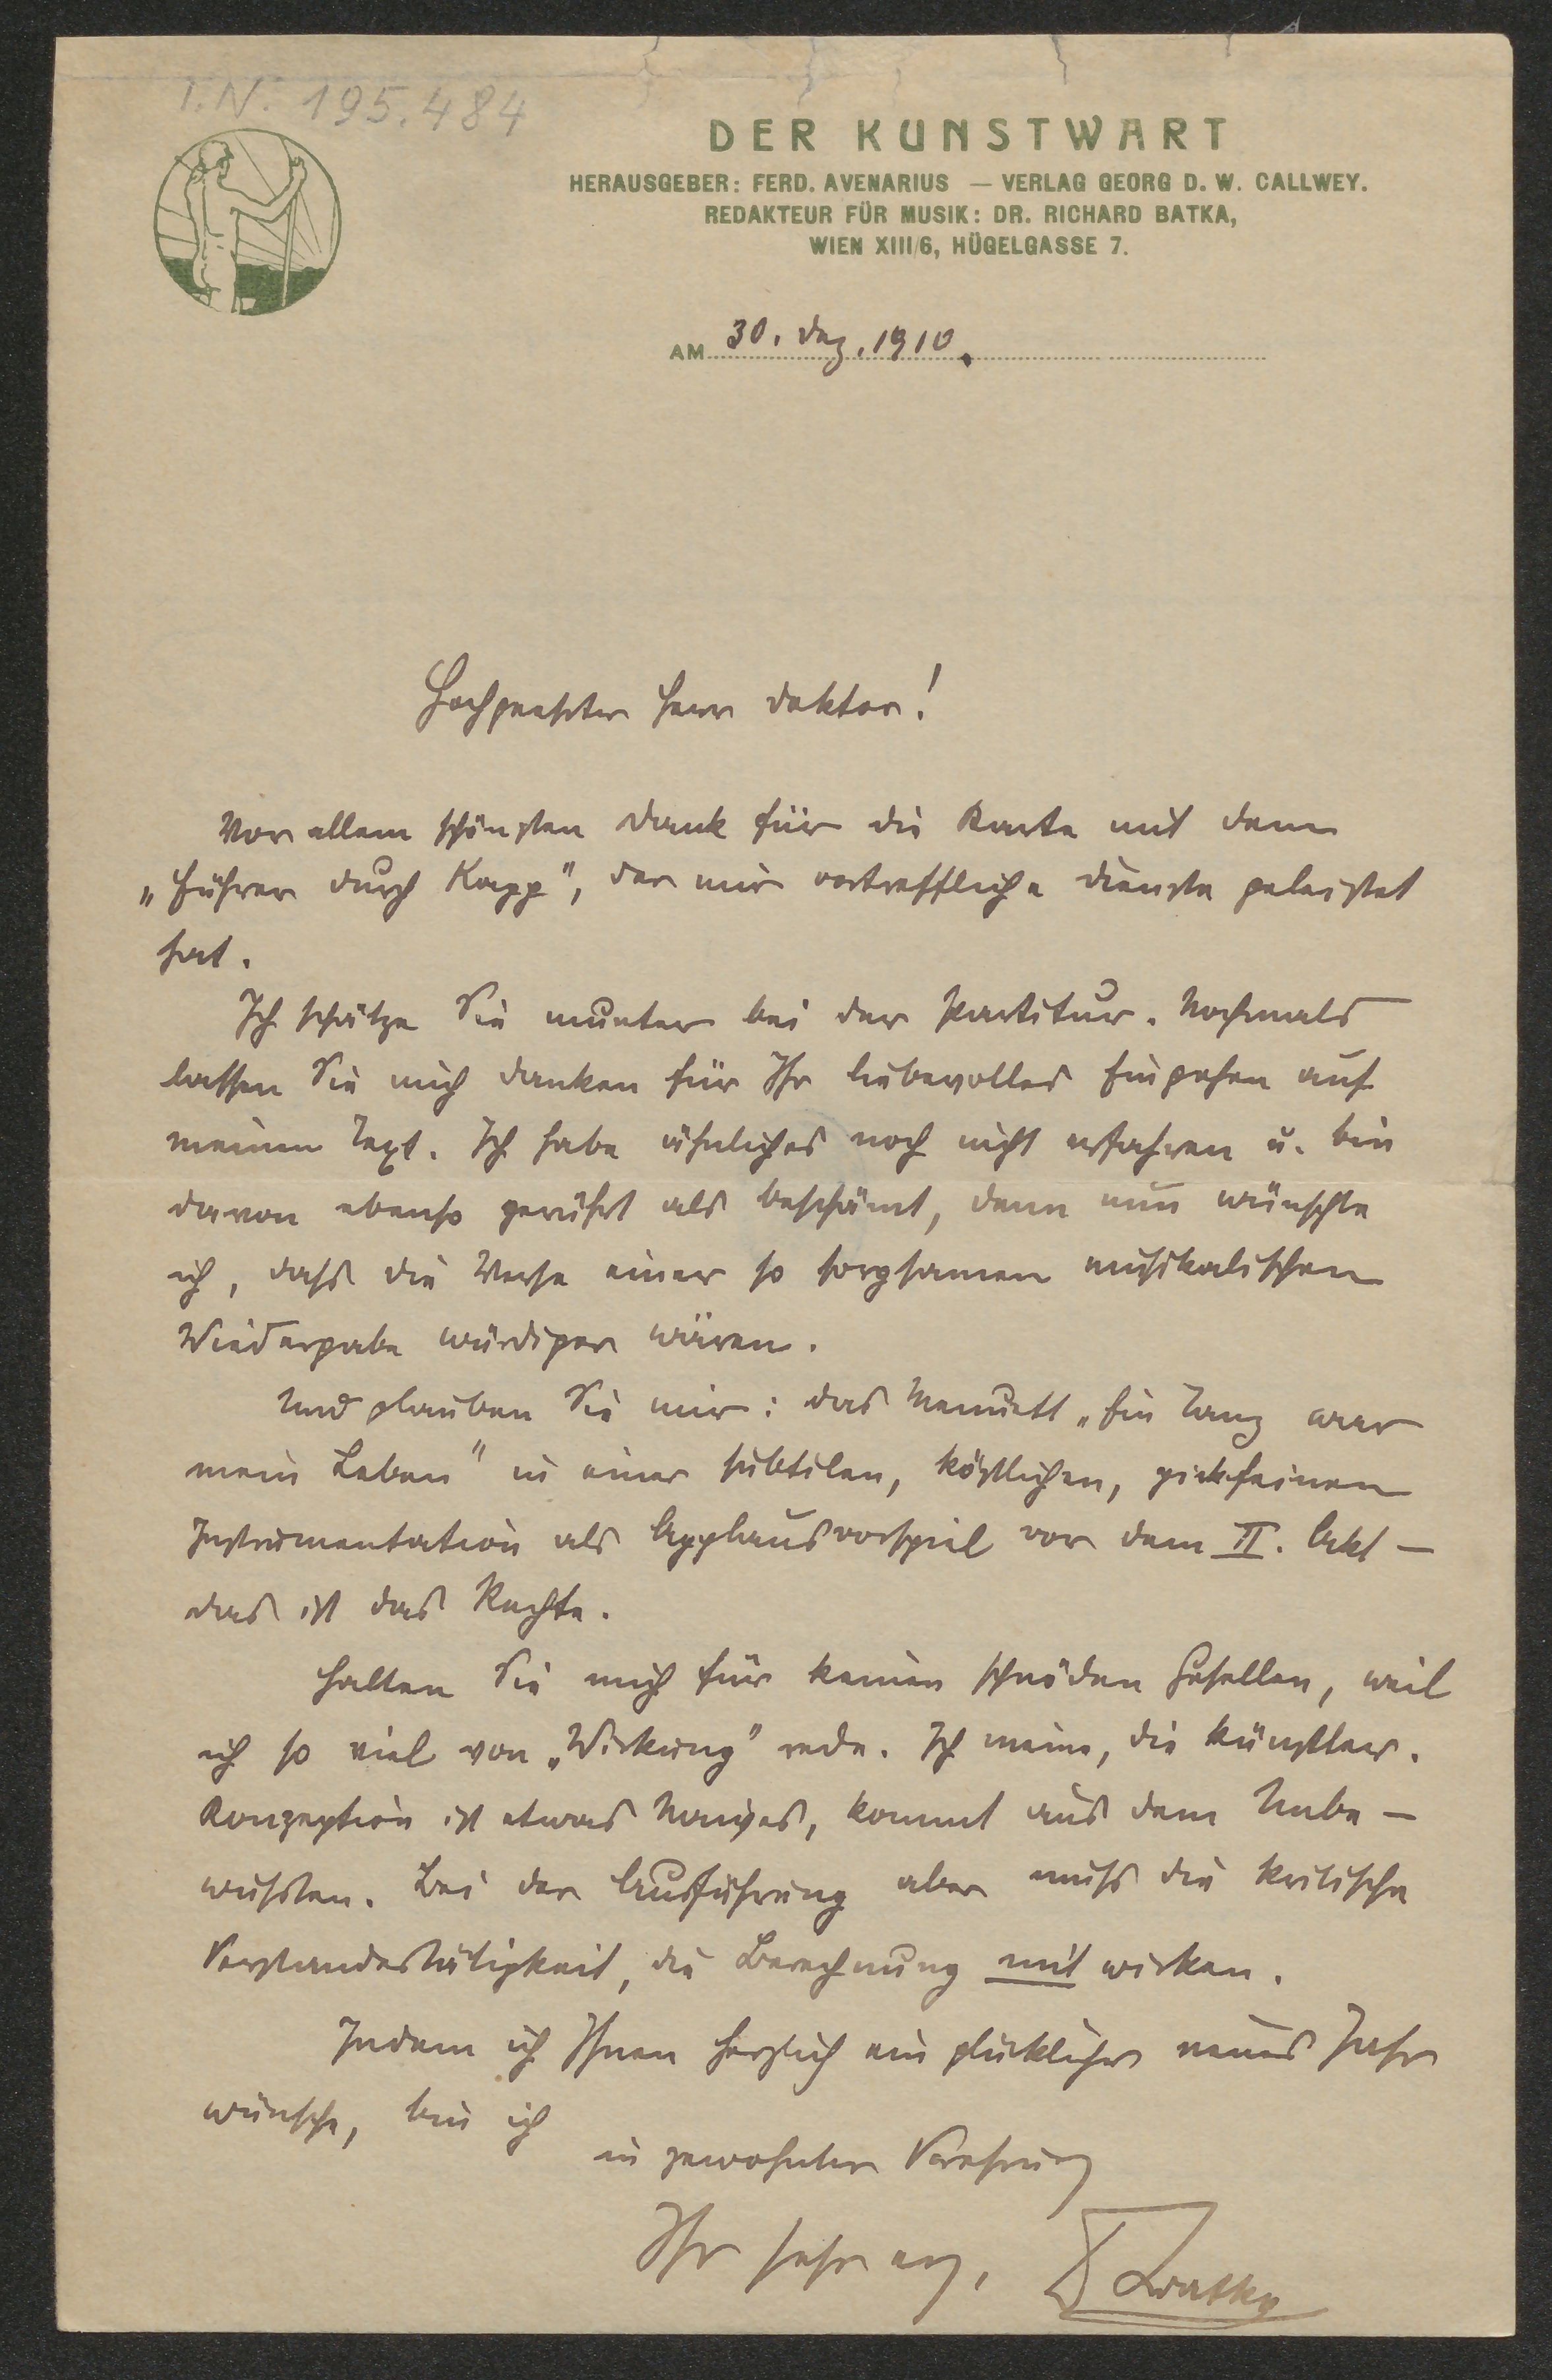 I.N. 195.484
DER KUNSTWART
HERAUSGEBER: FERD. AVENARIUS — VERLAG GEORG D. W. CALLWEY.
REDAKTEUR FÜR MUSIK: DR. RICHARD BATKA,
WIEN XIII/6, HÜGELGASSE 7.
AM 30. Dez. 1910.
Hochgeehrter Herr Doktor!
Vor allem schönsten Dank für die Karte mit dem
„Führer durch Kapp", der mir vortreffliche Dienste geleistet
hat.
Ich schätze Sie munter bei der Partitur. Nochmals
lassen Sie mich danken für Ihr liebevolles Eingehen auf
meinen Text. Ich habe ähnliches noch nicht erfahren u. bin
davon ebenso gerührt als beschämt, denn nun wünschte
ich, dass die Verse einer so sorgsamen musikalischen
Wiedergabe würdiger wären.
Und glauben Sie mir: das Menuett „Ein Tanz war
mein Leben" in einer subtilen, köstlichen, pickfeinen
Instrumentation als Applausvorspiel vor dem II. Akt —
das ist das Rechte.
Halten Sie mich für keinen schnöden Gesellen, weil
ich so viel von „Wirkung" rede. Ich meine, die künstler.
Konzeption ist etwas Naives, kommt aus dem Unbe-
wussten. Bei der Ausführung aber muss die kritische
Verstandestätigkeit, die Berechnung mit wirken.
Indem ich Ihnen herzlich ein glückliches neues Jahr
wünsche, bin ich
in gewohnter Verehrung
Ihr sehr erg.
Batka